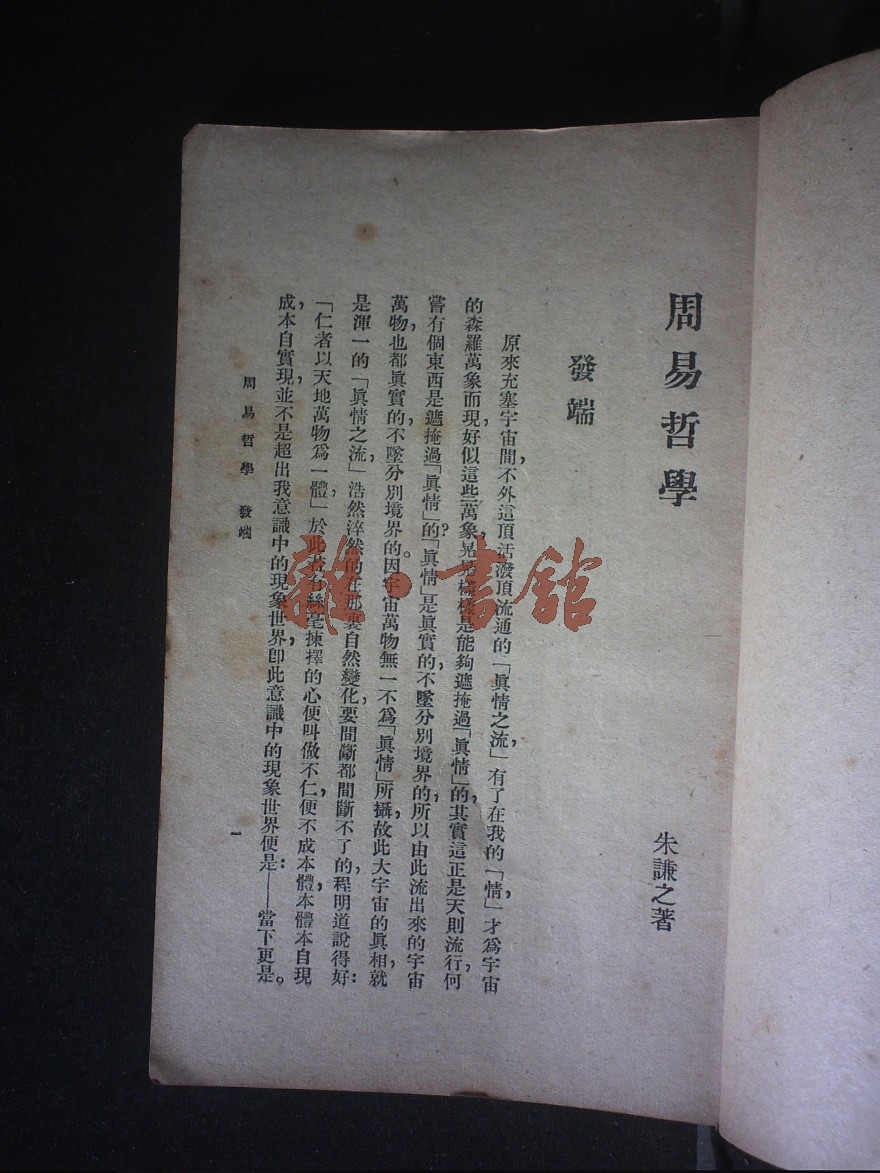 周易哲學
朱謙之著
發端
原來充塞宇宙間，不外這頂活潑頂流通的「眞情之流，」有了在我的「情，」才爲宇宙
的森羅萬象而現，好似這些萬象，晃晃樣樣是能夠遮掩過「眞情」的，其實這正是天則流行，何
嘗有個東西是遮掩過「眞情」的？「眞情」是眞實的，不墜分別境界的，所以由此流出來的宇宙
萬物，也都眞實的，不墜分別境界的。因宇宙萬物無一不爲「眞情」所攝，故此大宇宙的眞相，就
是渾一的「眞情之流，」浩然淬然的在那裏自然變化，要間斷都間斷不了的，程明道說得好：
「仁者以天地萬物爲一體，」於此若有絲毫揀擇的心，便叫做不仁，便不成本體，本體本自現
成，本自實現，並不是超出我意識中的現象世界，卽此意識中的現象世界便是：——當下更是。
周易哲學 發端
一
雜·書館